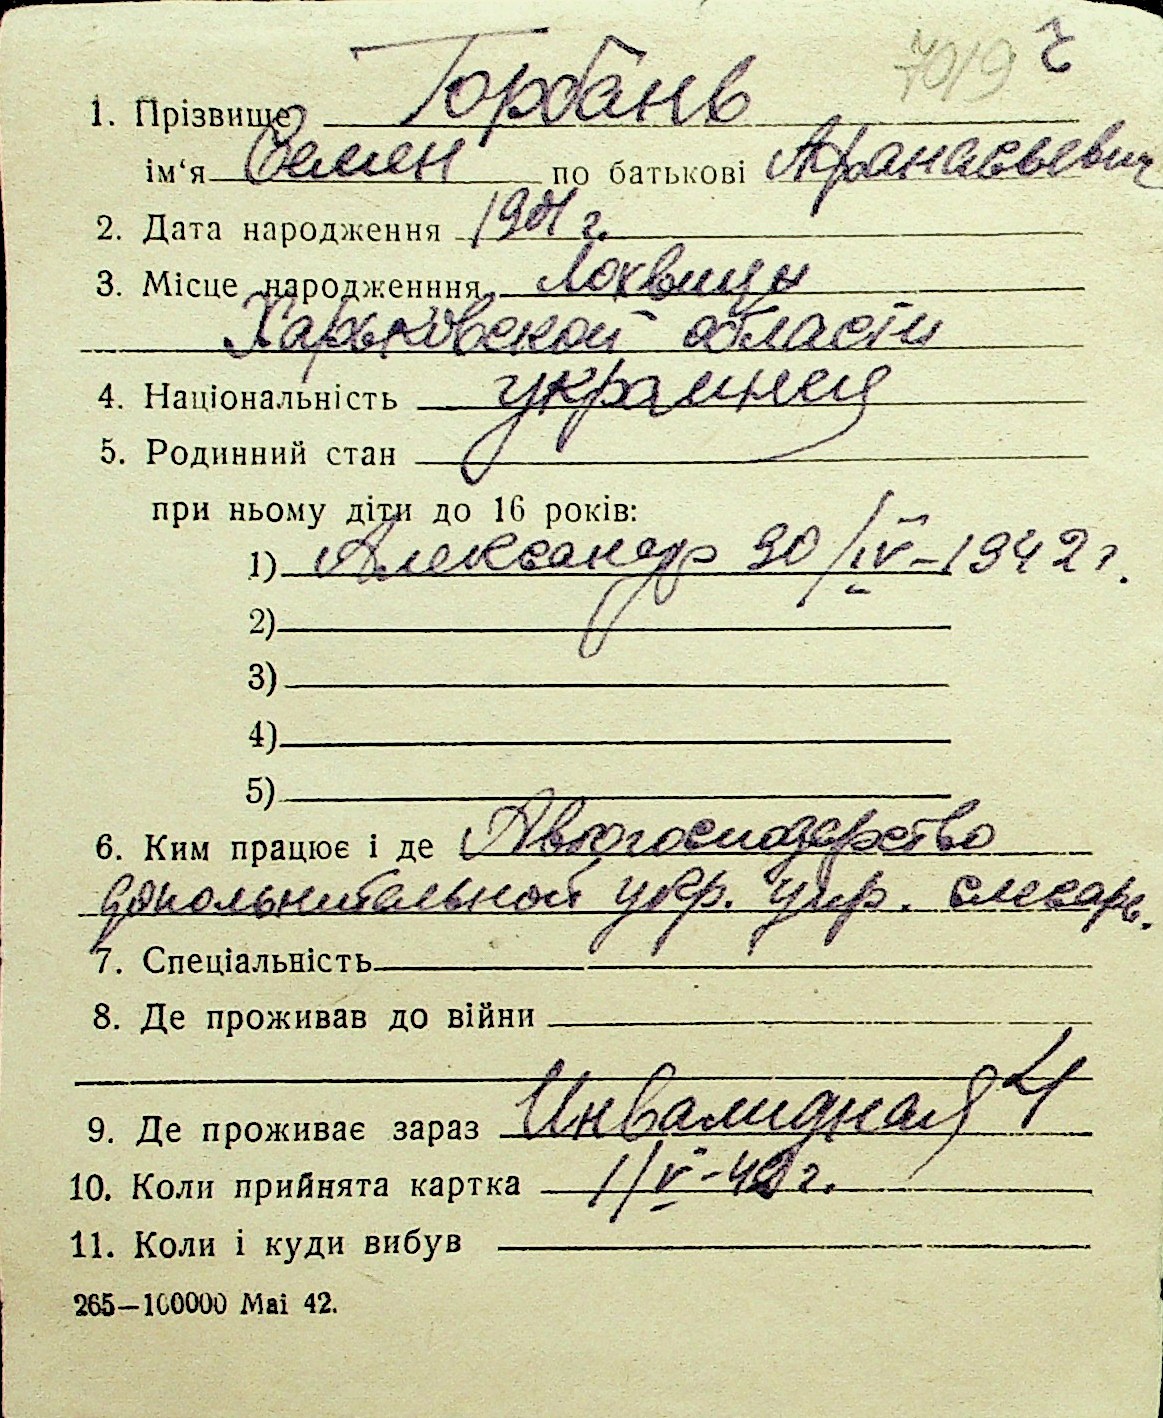 7019 г
1. Прізвище Горбань
ім‘я Семен по батькові Афанасьевич
2. Дата народження г.
3. Місце народженння Лохвици
Харьковской области
4. Національність украинец
5. Родинний стан
при ньому діти до 16 років:
1) Александр 30/IV-1942 г.
2)
3)
4)
5)
6. Ким працює і де Автогосподарство
допольнительной укр. упр. слесарь.
7. Спеціальність
8. Де проживав до війни
9. Де проживає зараз Инвалидная 4
10. Коли прийнята картка 1/V-42 г.
11. Коли і куди вибув
265—100000 Mai 42.